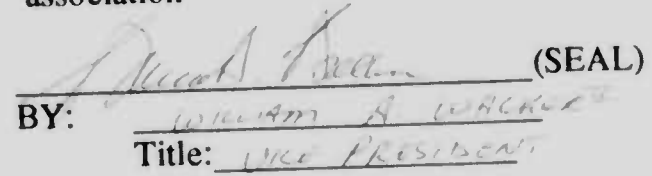 association
(SEAL)
BY: WILLIAM A
Title: VICE PRESIDENT